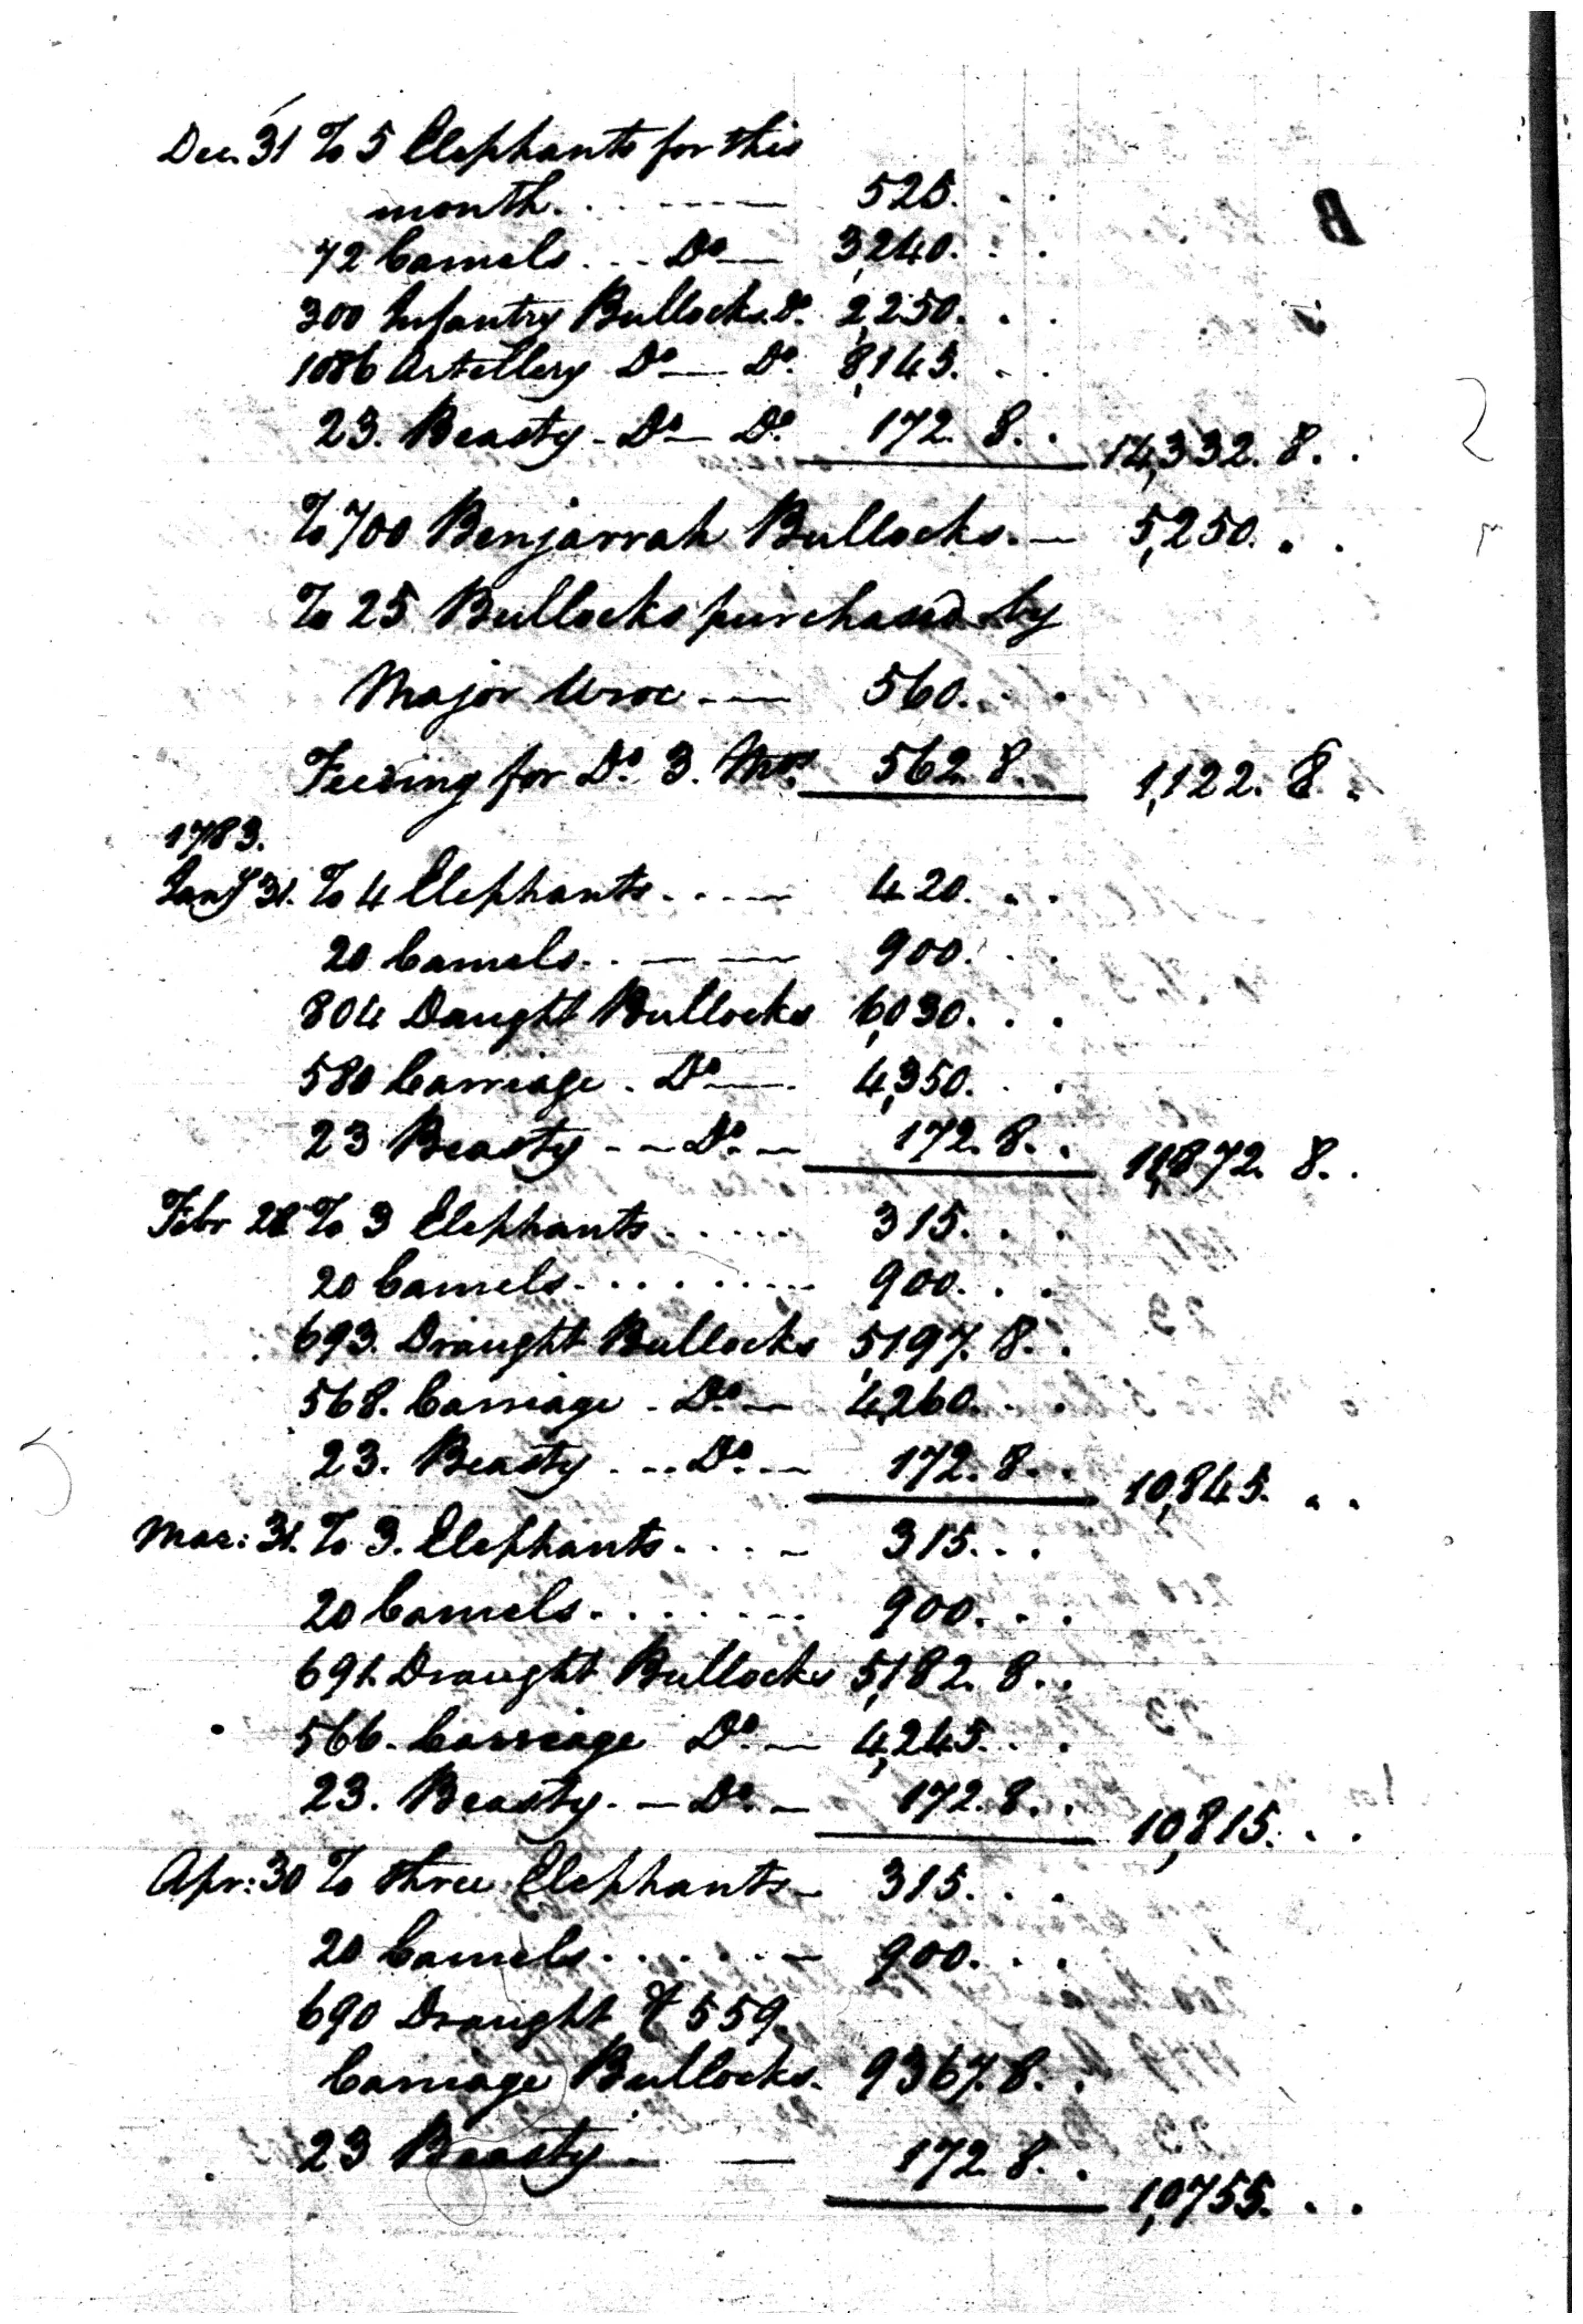 Dec. 31 To 5 Elephants for this
month. . . . ---- 525. . .
72 Camels. . . Do — 3,240. . .
300 Infantry Bullocks. Do. 2,250. . .
1086 Artillery Do — Do. 8,145. . .
23. Beasty - Do — Do. 172. 8. . 14,332. 8. .
To 700 Benjarrah Bullocks. — 5,250. . .
To 25 Bullocks purchased by
Major Uroe - — 560. . .
Feeding for Do. 3. Mos. 562. 8. 1,122. 8. .
1783.
Jany 31. To 4 Elephants. . . — 420. . .
20 Camels. . — — 900. . .
804 Daught Bullocks 6,030. . .
580 Carriage . Do — 4,350. . .
23 Beasty - - Do. — 172. 8. . 11,872. 8. .
Febr 28 To 3 Elephants . . . . . 315. . .
20 Camels. . . . . . . . 900. . .
693. Draught Bullocks 5,197. 8. .
568. Carriage . Do. — 4,260. . .
23. Beasty . . . Do. — 172. 8. . 10,845. . .
Mar: 31. To 3. Elephants. . . . - 315. . .
20 Camels. . . . . . . . 900. . .
691. Draught Bullocks 5,182. 8. .
566. Carriage Do. — 4,245. . .
23. Beasty. — Do. — 172. 8. . 10,815. . .
Apr: 30 To three Elephants — 315. . .
20 Camels. . . . . . — 900. . .
690 Draught & 559.
Carriage Bullocks. 9367. 8. .
23 Beasty — — 172. 8. . 10,755. . .